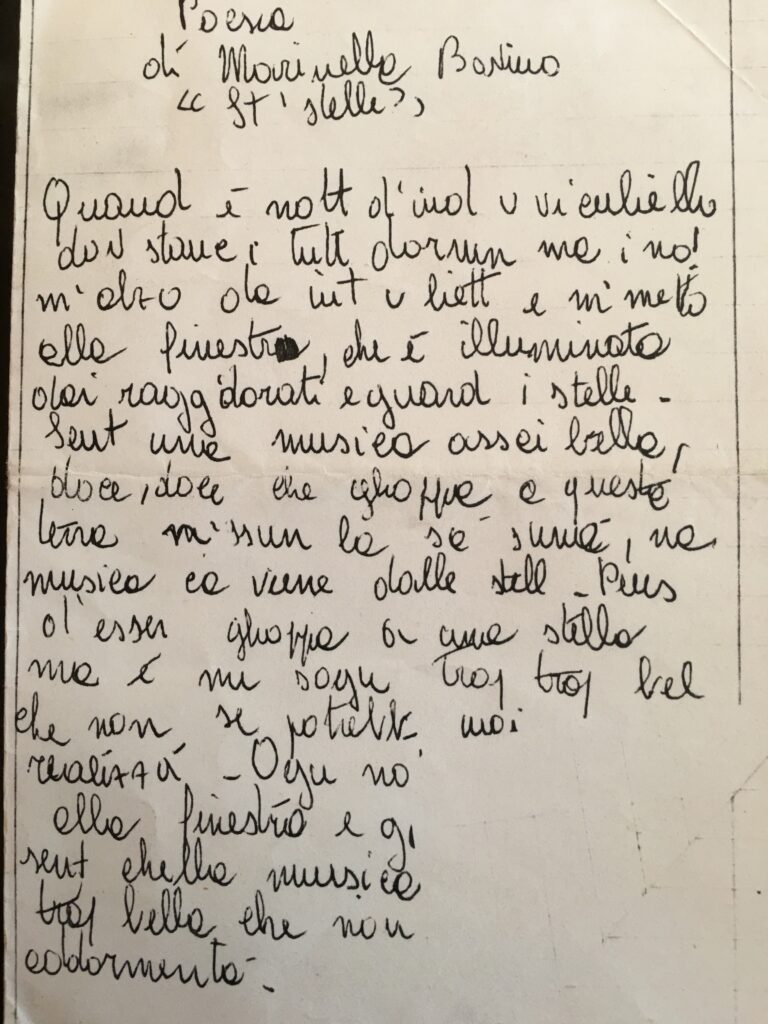 Poesia
di Marinella Bottino
"St' stelle",
Quand è nott d'ind u viculiello
dov stanc i tutt dormn ma i no!
m'alzo da int u liett e m'metto
alla finestra, che è illuminata
dai ragg'dorati e guard i stelle -
Sent una musica assai bella,
doce, doce che ghoppa a questa
terra n'issun la sa sunà, na
musica ca vene dalle stell - Pens
d'esser ghoppa a una stella
ma è nu sogn troj troj bel
che non se potrebb mai
realizzà - Ogn no'
alla finestra e gi
sent chella musica
troj bella che non
addormenta -